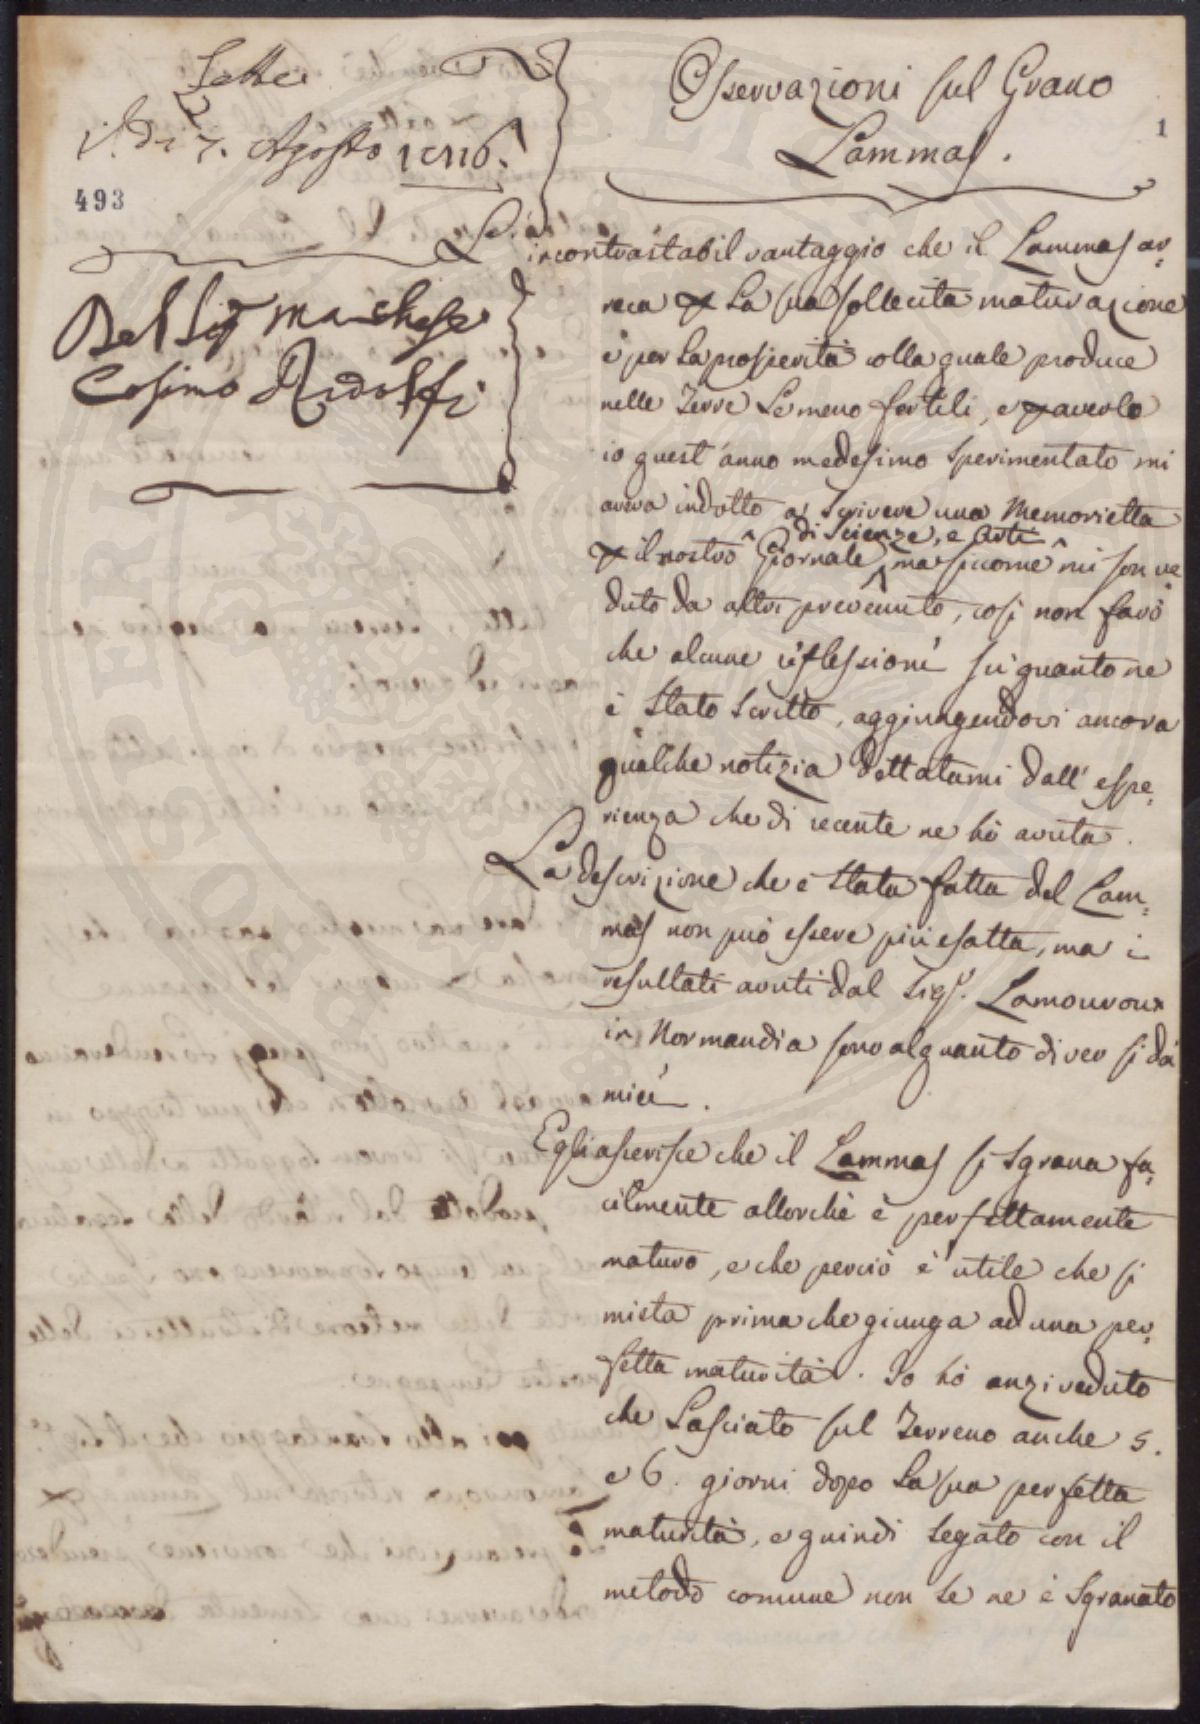 Letta
il dì 7. Agosto 1816.
493
Del Sig.r Marchese
Cosimo Ridolfi
1
Osservazioni sul Grano
Lammas.
L' incontrastabil vantaggio che il Lammas ar=
reca p la sua sollecita maturazione
e per la prosperità colla quale produce
nelle Terre le meno fertili, e p averlo
io quest'anno medesimo sperimentato mi
aveva indotto a scrivere una Memorietta
p il nostro Giornale di Scienze, e Arti ma siccome mi son ve=
duto da altri prevenuto, così non farò
che alcune riflessioni su quanto ne
è stato scritto, aggiungendovi ancora
qualche notizia dettatami dall' espe=
rienza che di recente ne hò avuta.
La descrizione che è stata fatta del Lam=
mas non può essere più esatta, ma i
resultati avuti dal Sig.r Lamouroux
in Normandia sono alquanto diversi da
miei.
Egli asserisce che il Lammas si sgrana fa=
cilmente allorchè è perfettamente
maturo, e che perciò è utile che si
mieta prima che giunga ad una per=
fetta maturità. Io hò anzi veduto
che lasciato sul Terreno anche 5.
e 6. giorni dopo la sua perfetta
maturità, e quindi segato con il
metodo comune non se ne è sgranato